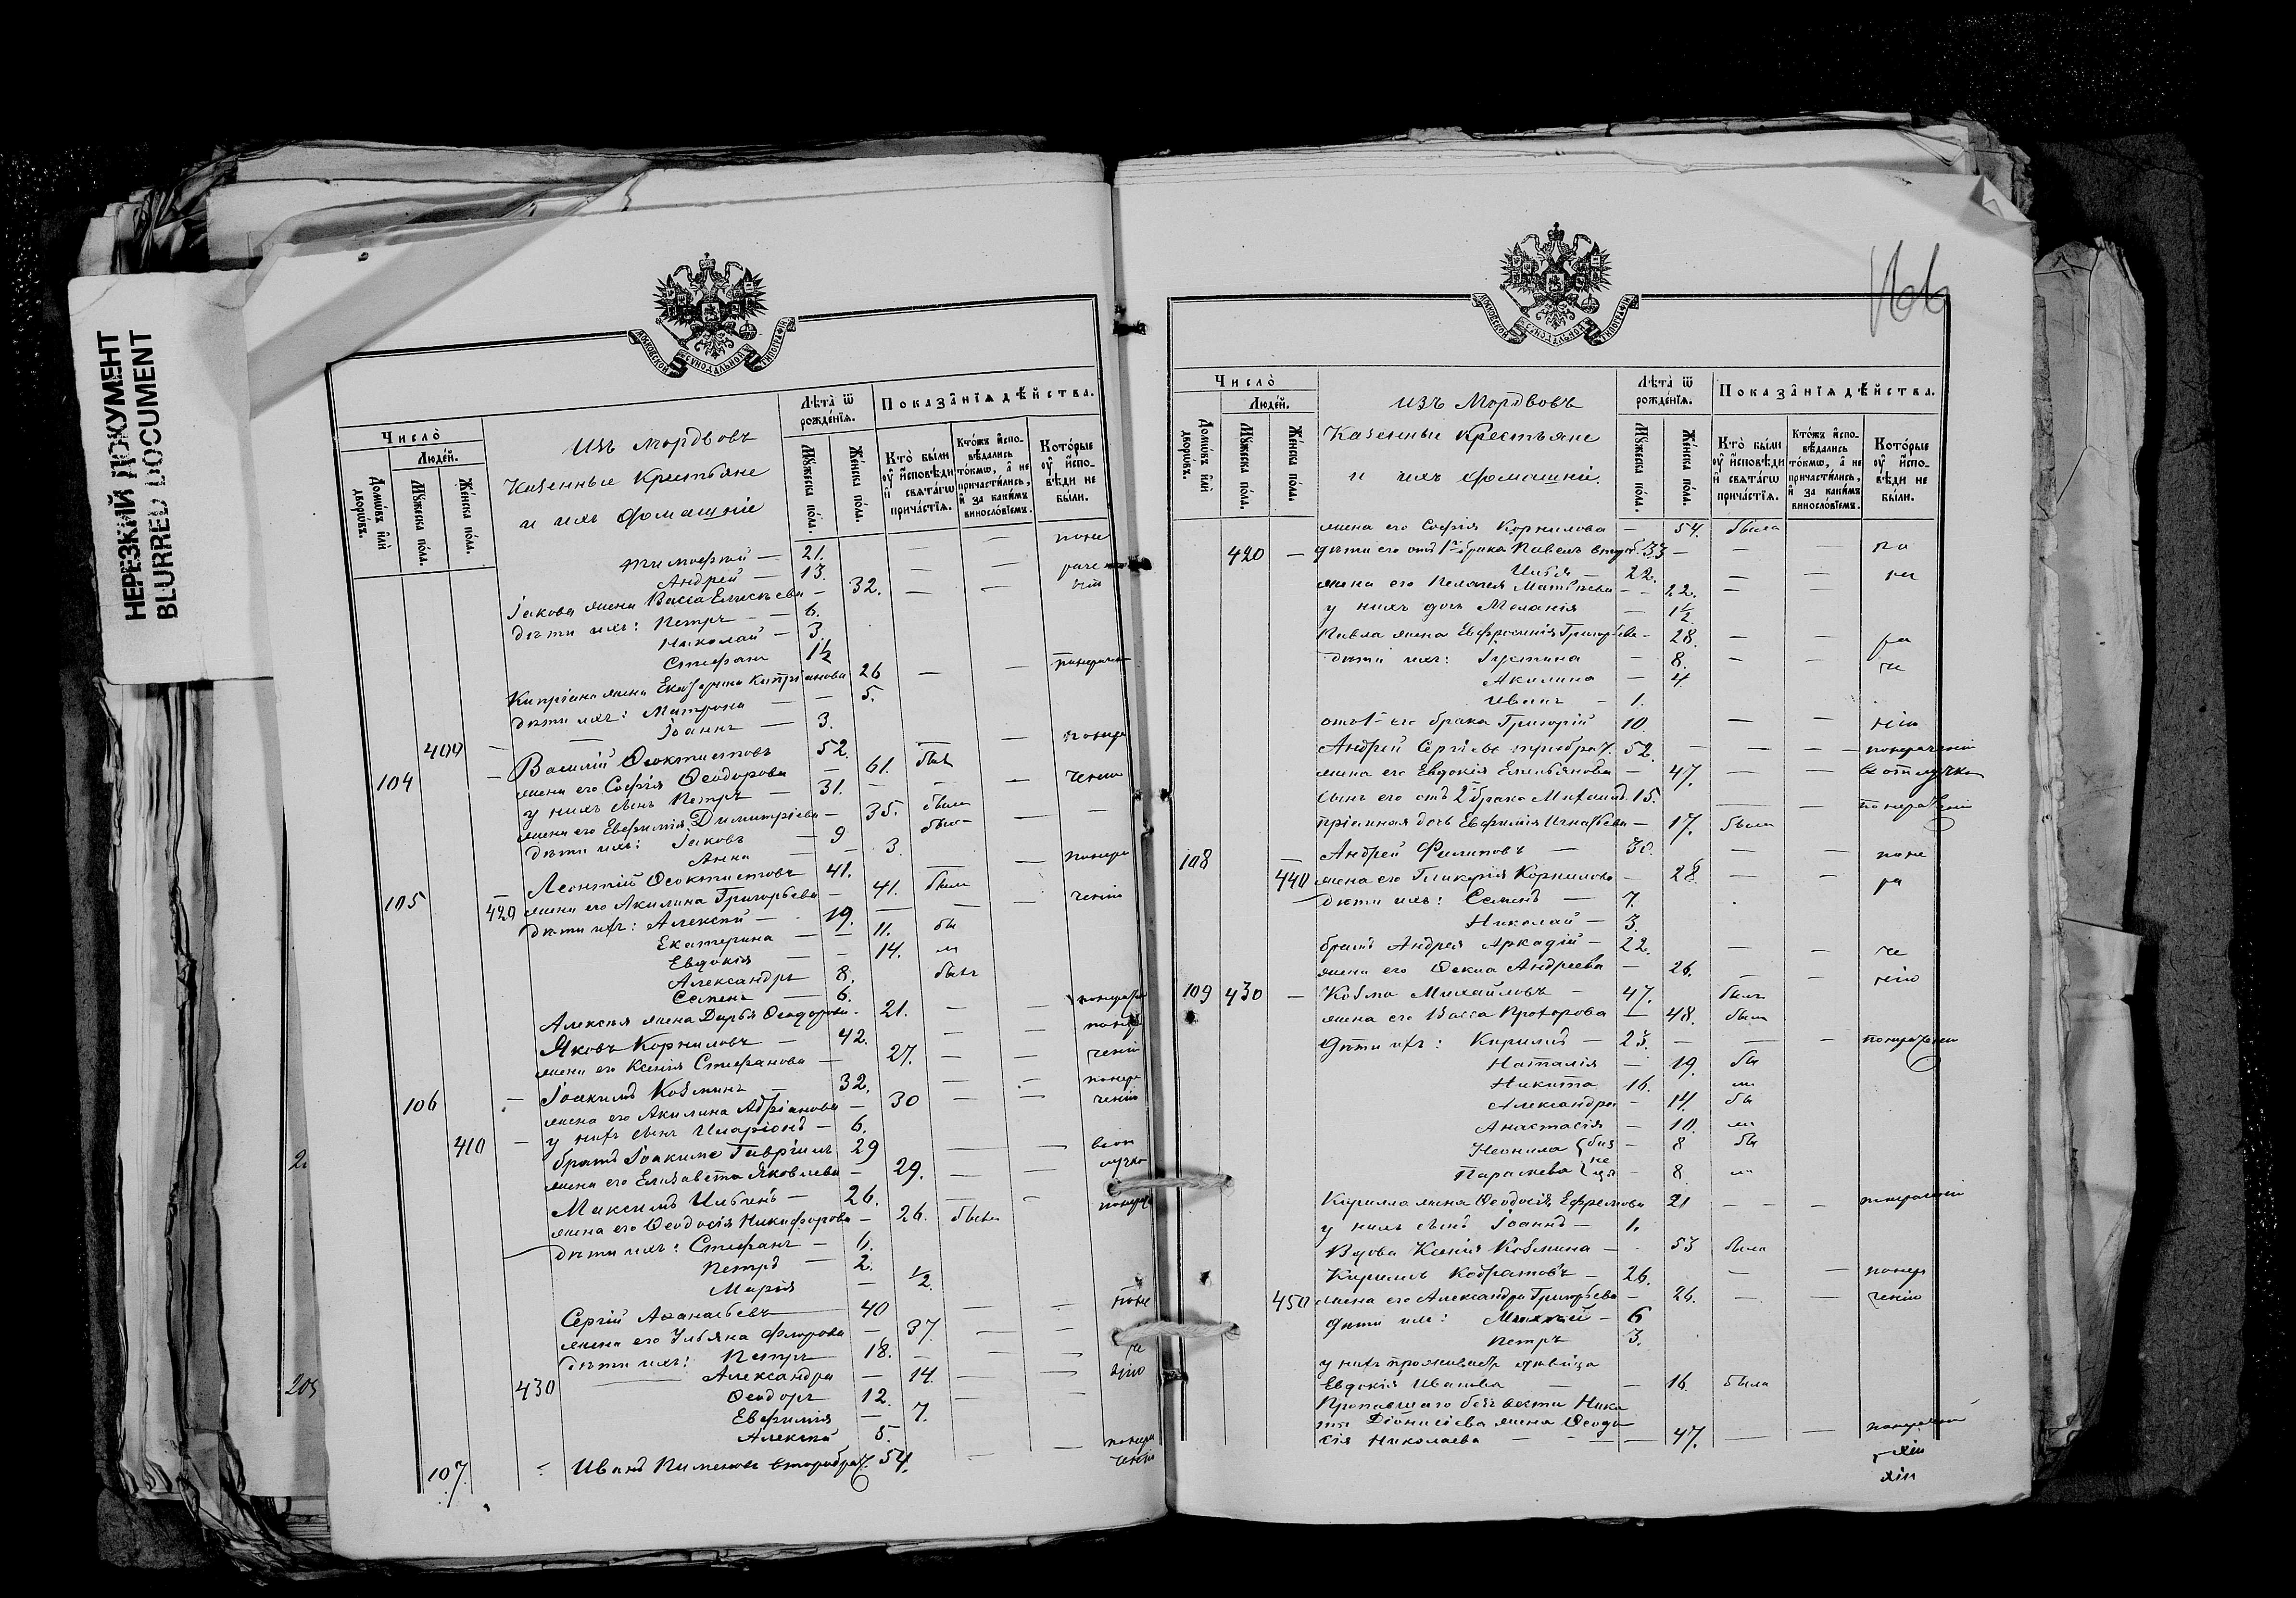 НЕРЕЗКИЙ ДОКУМЕНТ
BLURRED DOCUMENT
МОСКОВСКОЙ СѴНОДАЛЬНОЙ ТИПОГРАФІИ
Число̀
Людей.
Домѡвъ и҆лѝ дворѡвъ.
Мꙋжеска пола.
Женска пола.
Изъ мордвовъ
Казенные Крестьяне
и ихъ домашніе
Лѣта ѿ рожденїѧ.
Мꙋжеска пола.
Женска пола.
Показанїѧ дѣйства.
Кто были ᲂу҆ исповѣди и свѧтагѡ причастїѧ.
Ктожъ исповѣдались токмѡ, а не причастились, и за какимъ винословїемъ.
Которые ᲂу҆ исповѣди не были.
Тимофей — 21. — — поне
Андрей — 13. — — раче
Іакова жена Васса Елисѣева — 32. — — нію
дѣти ихъ: Петръ — 6.
Николай — 3.
Стефанъ 1½
Кипріана жена Екатерина Кипріанова 26 — — понераченію
дѣти ихъ: Матрона — 5.
Іоаннъ — 3.
104 400 — Василій Ѳеоктистовъ 52. — понера
жена его Софія Ѳеодорова — 61. была
у нихъ сынъ Петръ — 31. — — ченію
жена его Евфимія Димитріева — 35. была
дѣти ихъ: Іаковъ 9 былъ
Анна — 3.
105 — Леонтій Ѳеоктистовъ 41. — — понера
420 жена его Акилина Григорьева — 41. была
дѣти ихъ: Алексѣй — 19. — — ченію
Екатерина — 11. бы
Евдокія — 14. ли
Александръ 8. былъ
Семенъ — 6.
Алексѣя жена Дарья Ѳеодорова — 21. — — понера
Яковъ Корниловъ — 42. — — понера
жена его Ксенія Стефанова — 27. — — ченію
106 — Іоакимъ Козминъ — 32. — — понера
жена его Акилина Адріанова — 30 — — ченію
410 — у нихъ сынъ Иларіонъ — 6.
братъ Іоакима Гавріилъ 29 — — въот
жена его Елизавета Яковлева — 29. — лучкѣ
Максимъ Ильинъ — 26. — — понера
жена его Ѳеодосія Никифорова — 26. была
дѣти ихъ: Стефанъ — 6.
Петръ — 2.
Марія — ½
Сергій Аѳанасьевъ 40 — — поне
жена его Ульяна Флорова — 37. — —
дѣти ихъ: Петръ 18. — — че
430 Александра — 14. — — нію
Ѳеодоръ 12. — —
Евфимія — 7.
Алексѣй 5.
107. — Иванъ Пименовъ второбрач. 54. — — понера
ченію
166
МОСКОВСКОЙ СѴНОДАЛЬНОЙ ТИПОГРАФІИ
Число̀
Людей.
Домѡвъ и҆лѝ дворѡвъ.
Мꙋжеска пола.
Женска пола.
изъ Мордвовъ
Казенные Крестьяне
и ихъ домашніе.
Лѣта ѿ рожденїѧ.
Мꙋжеска пола.
Женска пола.
Показанїѧ дѣйства.
Кто были ᲂу҆ исповѣди и свѧтагѡ причастїѧ.
Ктожъ исповѣдались токмѡ, а не причастились, и за какимъ винословїемъ.
Которые ᲂу҆ исповѣди не были.
жена его Софія Корнилова — 54. была
420 — дѣти его отъ 1го брака Павелъ второб. 33 — — — по
Илья — 22. — — не
жена его Пелагея Матвѣева — 22. — —
у нихъ дочь Меланія — 1½
Павла жена Евфросинія Григорьева — 28. — — ра
дѣти ихъ: Іустина — 8. — — че
Акилина — 4.
Иванъ — 1.
отъ 1го брака Григорій 10. — — нію
Андрей Сергіевъ третьебрач. 52. — — — понераченію
жена его Евдокія Емельянова — 47. — — въ отлучкѣ
сынъ его отъ 2го брака Михаилъ 15. — — понераченію
пріемная дочь Евфимія Игнатьева — 17. была
108 — Андрей Филиповъ — 30. — — поне
440 жена его Гликерія Корнилова — 28. — — ра
дѣти ихъ: Семенъ — 7.
Николай — 3.
братъ Андрея Аркадій — 22. — — че
жена его Ѳекла Андреева — 26. — — нію
109 430 — Козма Михайловъ — 47. былъ
жена его Васса Прохорова — 48. была
Дѣти ихъ: Кирилъ — 23. — — понераченію
Наталія — 19. бы
Никита 16. ли
Александра — 14. бы
Анастасія — 10. ли
Неонила — 8 бы
Параскева — 8. ли
Кирилла жена Ѳеодосія Ефремова 21 — — понераченію
у нихъ сынъ Іоаннъ — 1.
Вдова Ксенія Козмина — 53 была
Кирилъ Кодратовъ — 26. — — понера
450 жена его Александра Григорьева — 26. — — ченію
дѣти ихъ: — 6
Петръ 3.
у нихъ проживаетъ дѣвица
Евдокія Иванова — 16. была
Пропавшаго безъ вести Ники
ты Діонисіева жена Ѳеодо
сія Николаева — — 47. — — понераченію